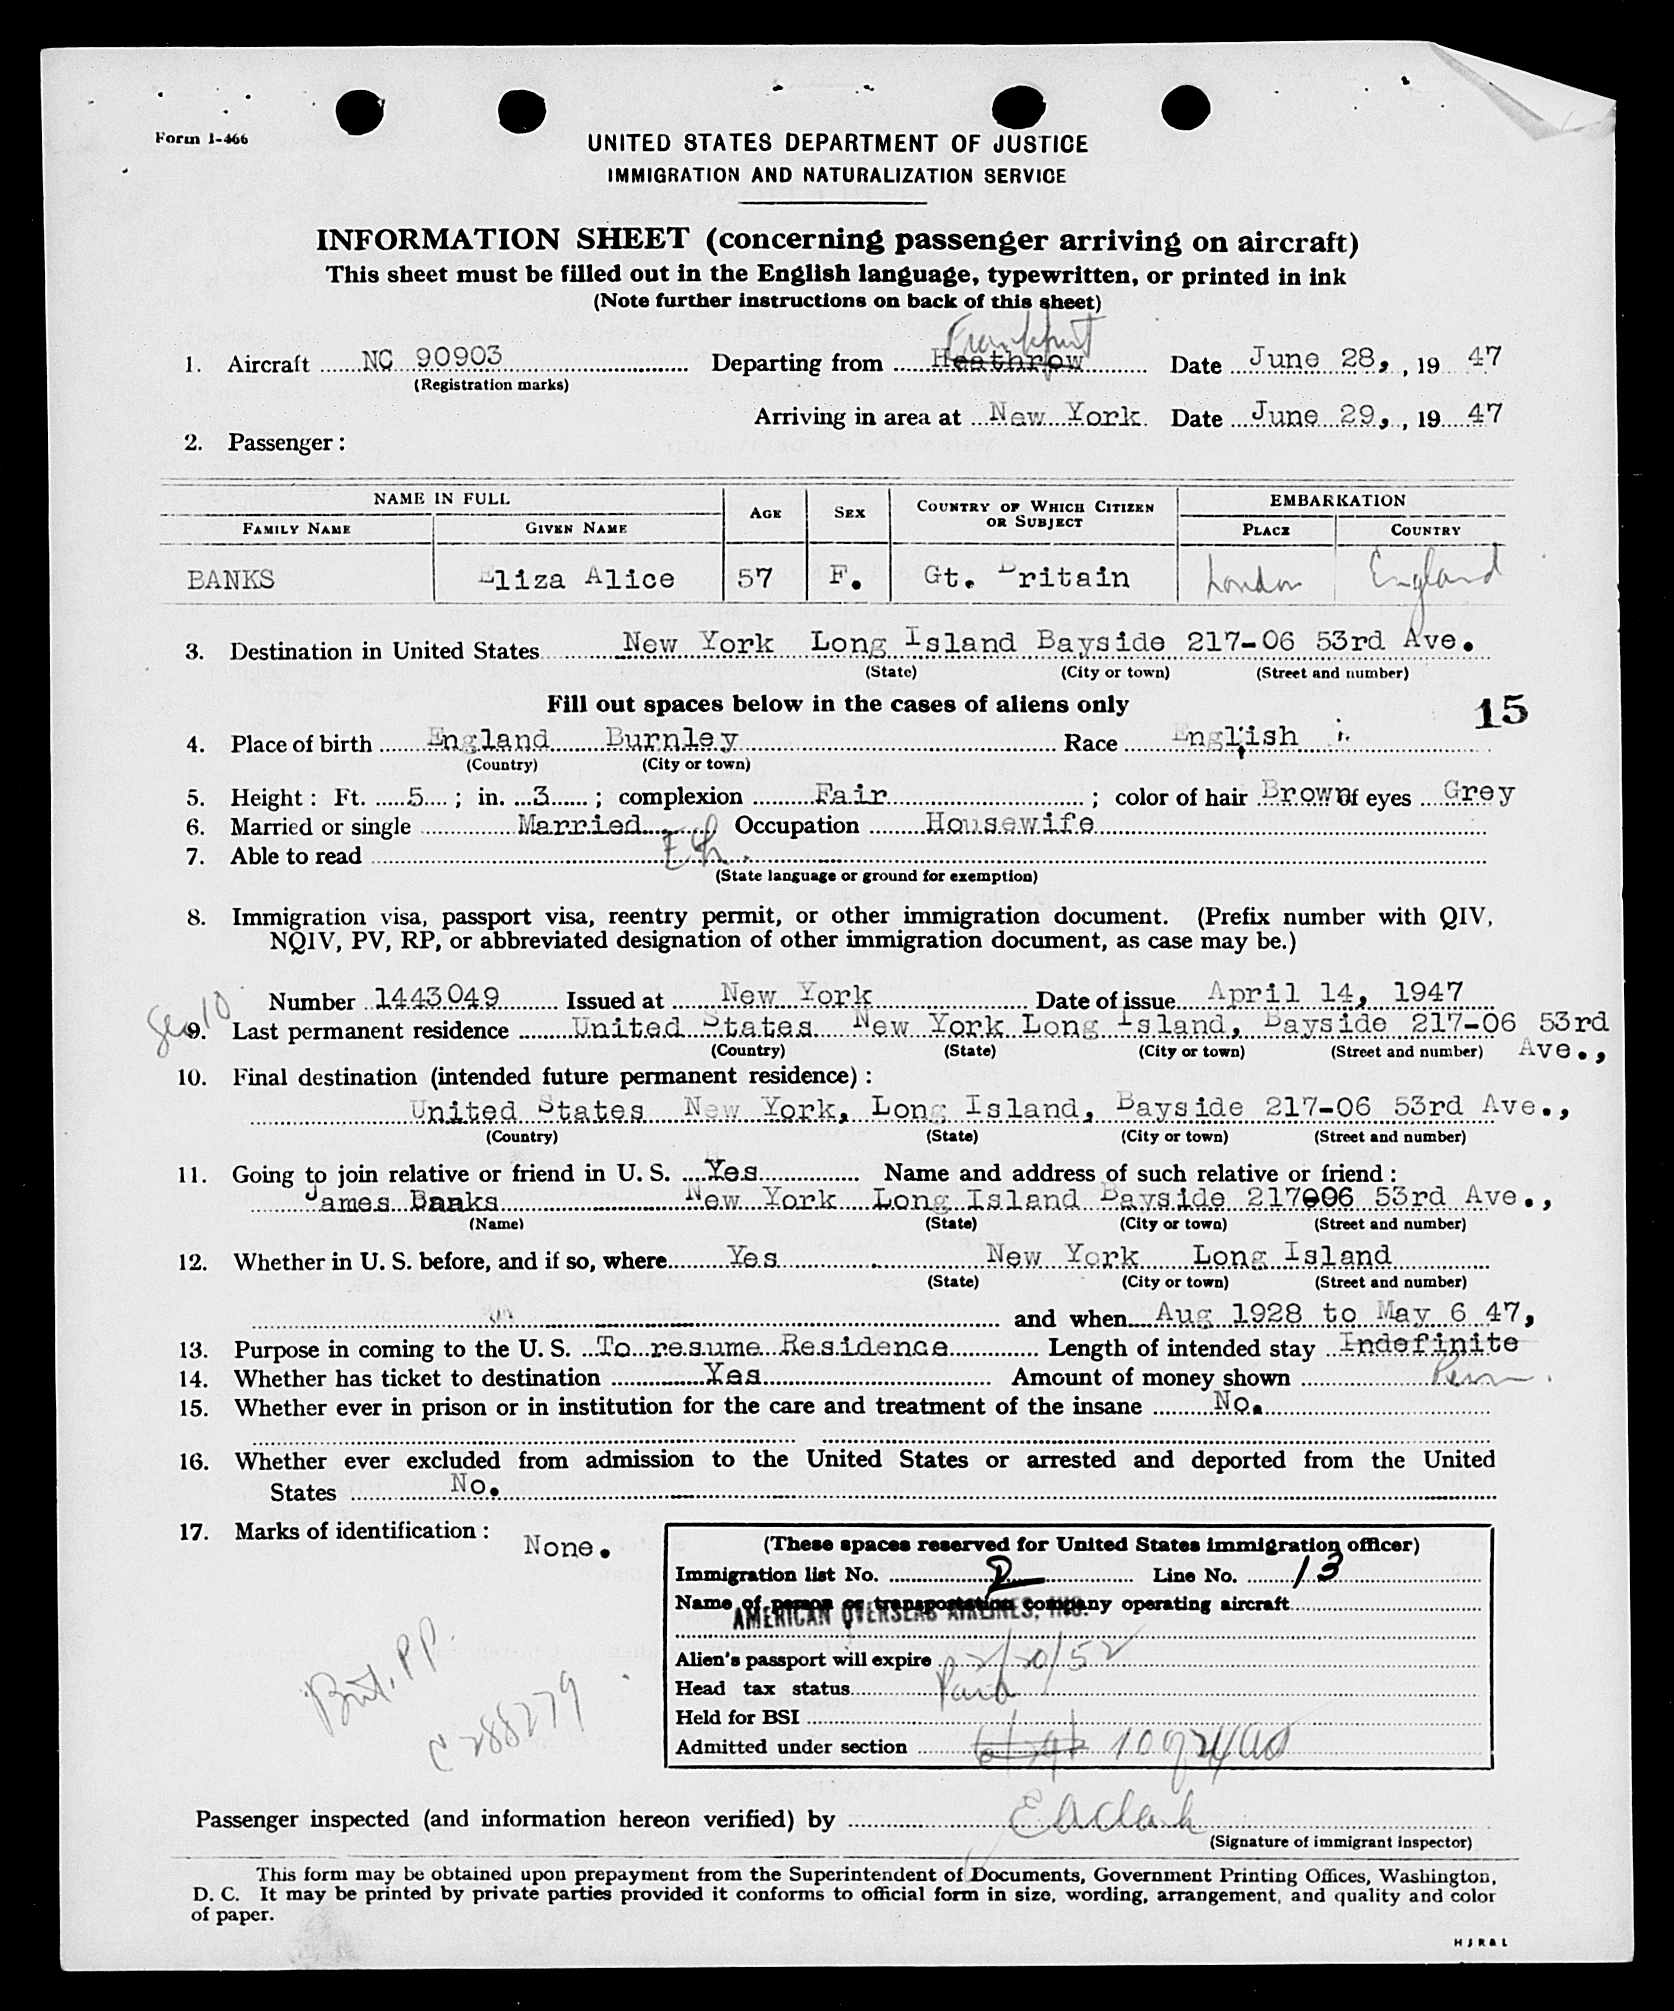 Form I-466
UNITED STATES DEPARTMENT OF JUSTICE
IMMIGRATION AND NATURALIZATION SERVICE
INFORMATION SHEET (concerning passenger arriving on aircraft)
This sheet must be filled out in the English language, typewritten, or printed in ink
(Note further instructions on back of this sheet)
Frankfurt
1. Aircraft NC 90903 Departing from Heathrow Date June 28, , 19 47
(Registration marks)
Arriving in area at New York. Date June 29, , 19 47
2. Passenger:
NAME IN FULL AGE SEX COUNTRY OF WHICH CITIZEN OR SUBJECT EMBARKATION
FAMILY NAME GIVEN NAME PLACE COUNTRY
BANKS Eliza Alice 57 F. Gt. Britain London England
3. Destination in United States New York Long Island Bayside 217-06 53rd Ave.
(State) (City or town) (Street and number)
Fill out spaces below in the cases of aliens only
15
4. Place of birth England Burnley Race English
(Country) (City or town)
5. Height: Ft. 5 ; in. 3 ; complexion Fair ; color of hair Brown of eyes Grey
6. Married or single Married Occupation Housewife
7. Able to read
(State language or ground for exemption)
8. Immigration visa, passport visa, reentry permit, or other immigration document. (Prefix number with QIV,
NQIV, PV, RP, or abbreviated designation of other immigration document, as case may be.)
Number 1443049 Issued at New York Date of issue April 14, 1947
9. Last permanent residence United States New York Long Island, Bayside 217-06 53rd
(Country) (State) (City or town) (Street and number) Ave.,
10. Final destination (intended future permanent residence):
United States New York, Long Island, Bayside 217-06 53rd Ave.,
(Country) (State) (City or town) (Street and number)
11. Going to join relative or friend in U. S. Yes Name and address of such relative or friend:
James Banks New York Long Island Bayside 217006 53rd Ave.,
(Name) (State) (City or town) (Street and number)
12. Whether in U. S. before, and if so, where Yes New York Long Island
(State) (City or town) (Street and number)
and when Aug 1928 to May 6 47,
13. Purpose in coming to the U. S. To resume Residence Length of intended stay Indefinite
14. Whether has ticket to destination Yes Amount of money shown
15. Whether ever in prison or in institution for the care and treatment of the insane No.
16. Whether ever excluded from admission to the United States or arrested and deported from the United
States No.
17. Marks of identification: None.
(These spaces reserved for United States immigration officer)
Immigration list No. 2 Line No. 13
Name of person or transportation company operating aircraft
AMERICAN OVERSEAS AIRLINES, INC.
Alien's passport will expire 2/20/52
Head tax status Paid
Held for BSI
Admitted under section
Brit. PP.
C 288279
Passenger inspected (and information hereon verified) by
(Signature of immigrant inspector)
This form may be obtained upon prepayment from the Superintendent of Documents, Government Printing Offices, Washington,
D. C. It may be printed by private parties provided it conforms to official form in size, wording, arrangement, and quality and color
of paper.
H J R & L